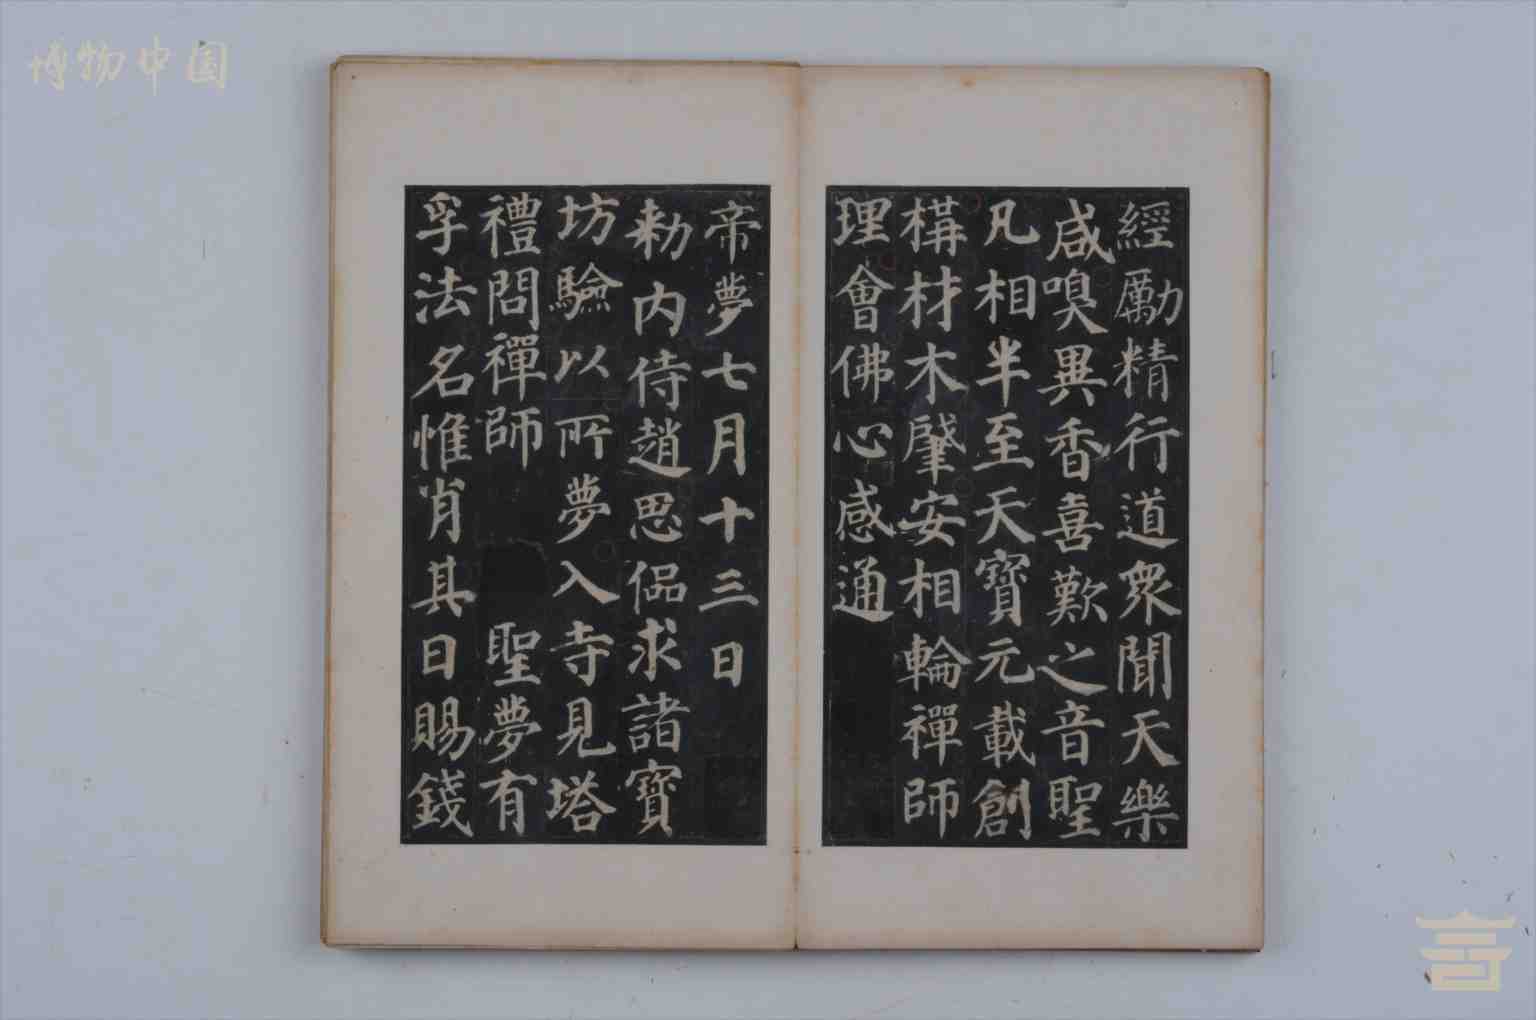 博物中国
經勵精行道衆聞天樂
咸嗅異香喜歎之音聖
凡相半至天寶元載創
構材木肇安相輪禪師
理會佛心感通
帝夢七月十三日
勑内侍趙思偘求諸寶
坊驗以所夢入寺見塔
禮問禪師 聖夢有
孚法名惟肖其日賜錢